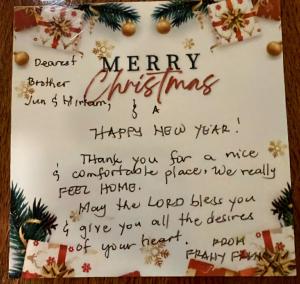 Dearest
Brother
Jun & Miriam,
MERRY
Christmas
& A
HAPPY NEW YEAR!
Thank you for a nice
& comfortable place, We really
FEEL HOME.
May the LORD bless you
& give you all the desires
of your heart.
FROM